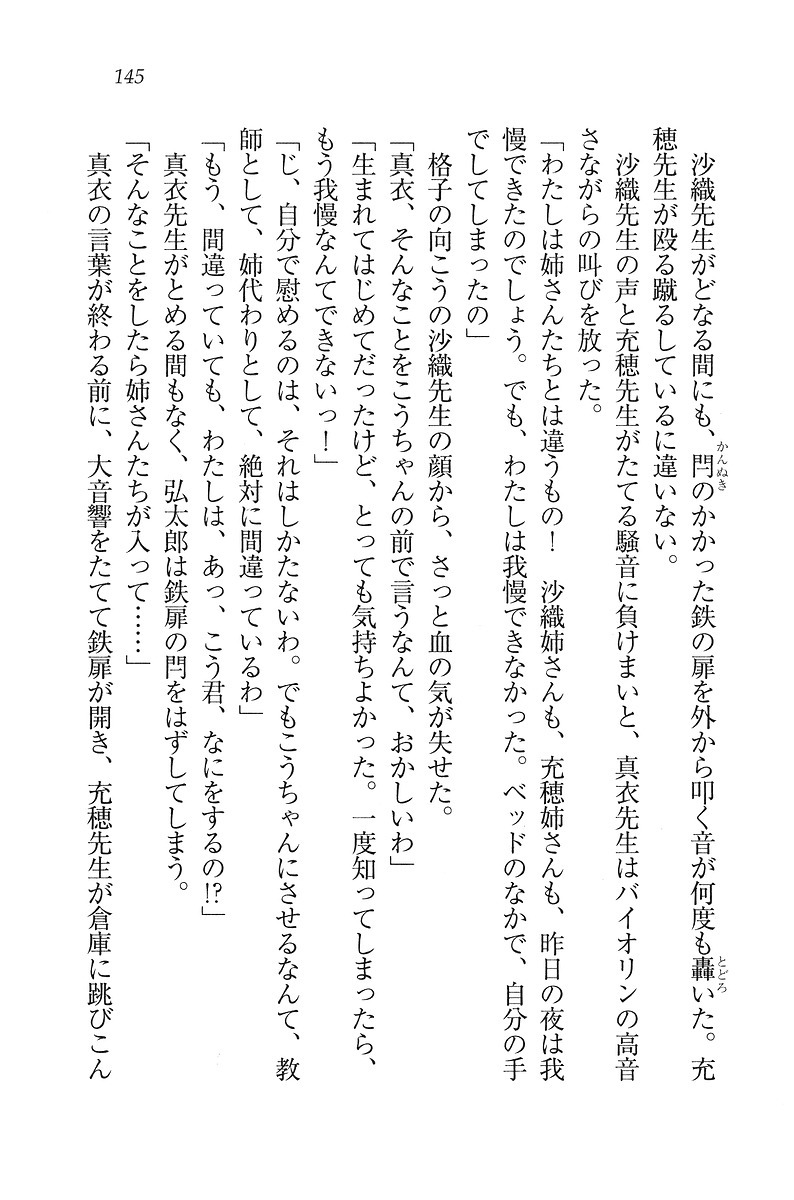 145
沙織先生がどなる間にも、閂のかかった鉄の扉を外から叩く音が何度も轟いた。充
かんぬき
とどろ
穂先生が殴る蹴るしているに違いない。
沙織先生の声と充穂先生がたてる騒音に負けまいと、真衣先生はバイオリンの高音
さながらの叫びを放った。
「わたしは姉さんたちとは違うもの！　沙織姉さんも、充穂姉さんも、昨日の夜は我
慢できたのでしょう。でも、わたしは我慢できなかった。ベッドのなかで、自分の手
でしてしまったの」
格子の向こうの沙織先生の顔から、さっと血の気が失せた。
「真衣、そんなことをこうちゃんの前で言うなんて、おかしいわ」
「生まれてはじめてだったけど、とっても気持ちよかった。一度知ってしまったら、
もう我慢なんてできないっ！」
「じ、自分で慰めるのは、それはしかたないわ。でもこうちゃんにさせるなんて、教
師として、姉代わりとして、絶対に間違っているわ」
「もう、間違っていても、わたしは、あっ、こう君、なにをするの!?」
真衣先生がとめる間もなく、弘太郎は鉄扉の閂をはずしてしまう。
「そんなことをしたら姉さんたちが入って……」
真衣の言葉が終わる前に、大音響をたてて鉄扉が開き、充穂先生が倉庫に跳びこん